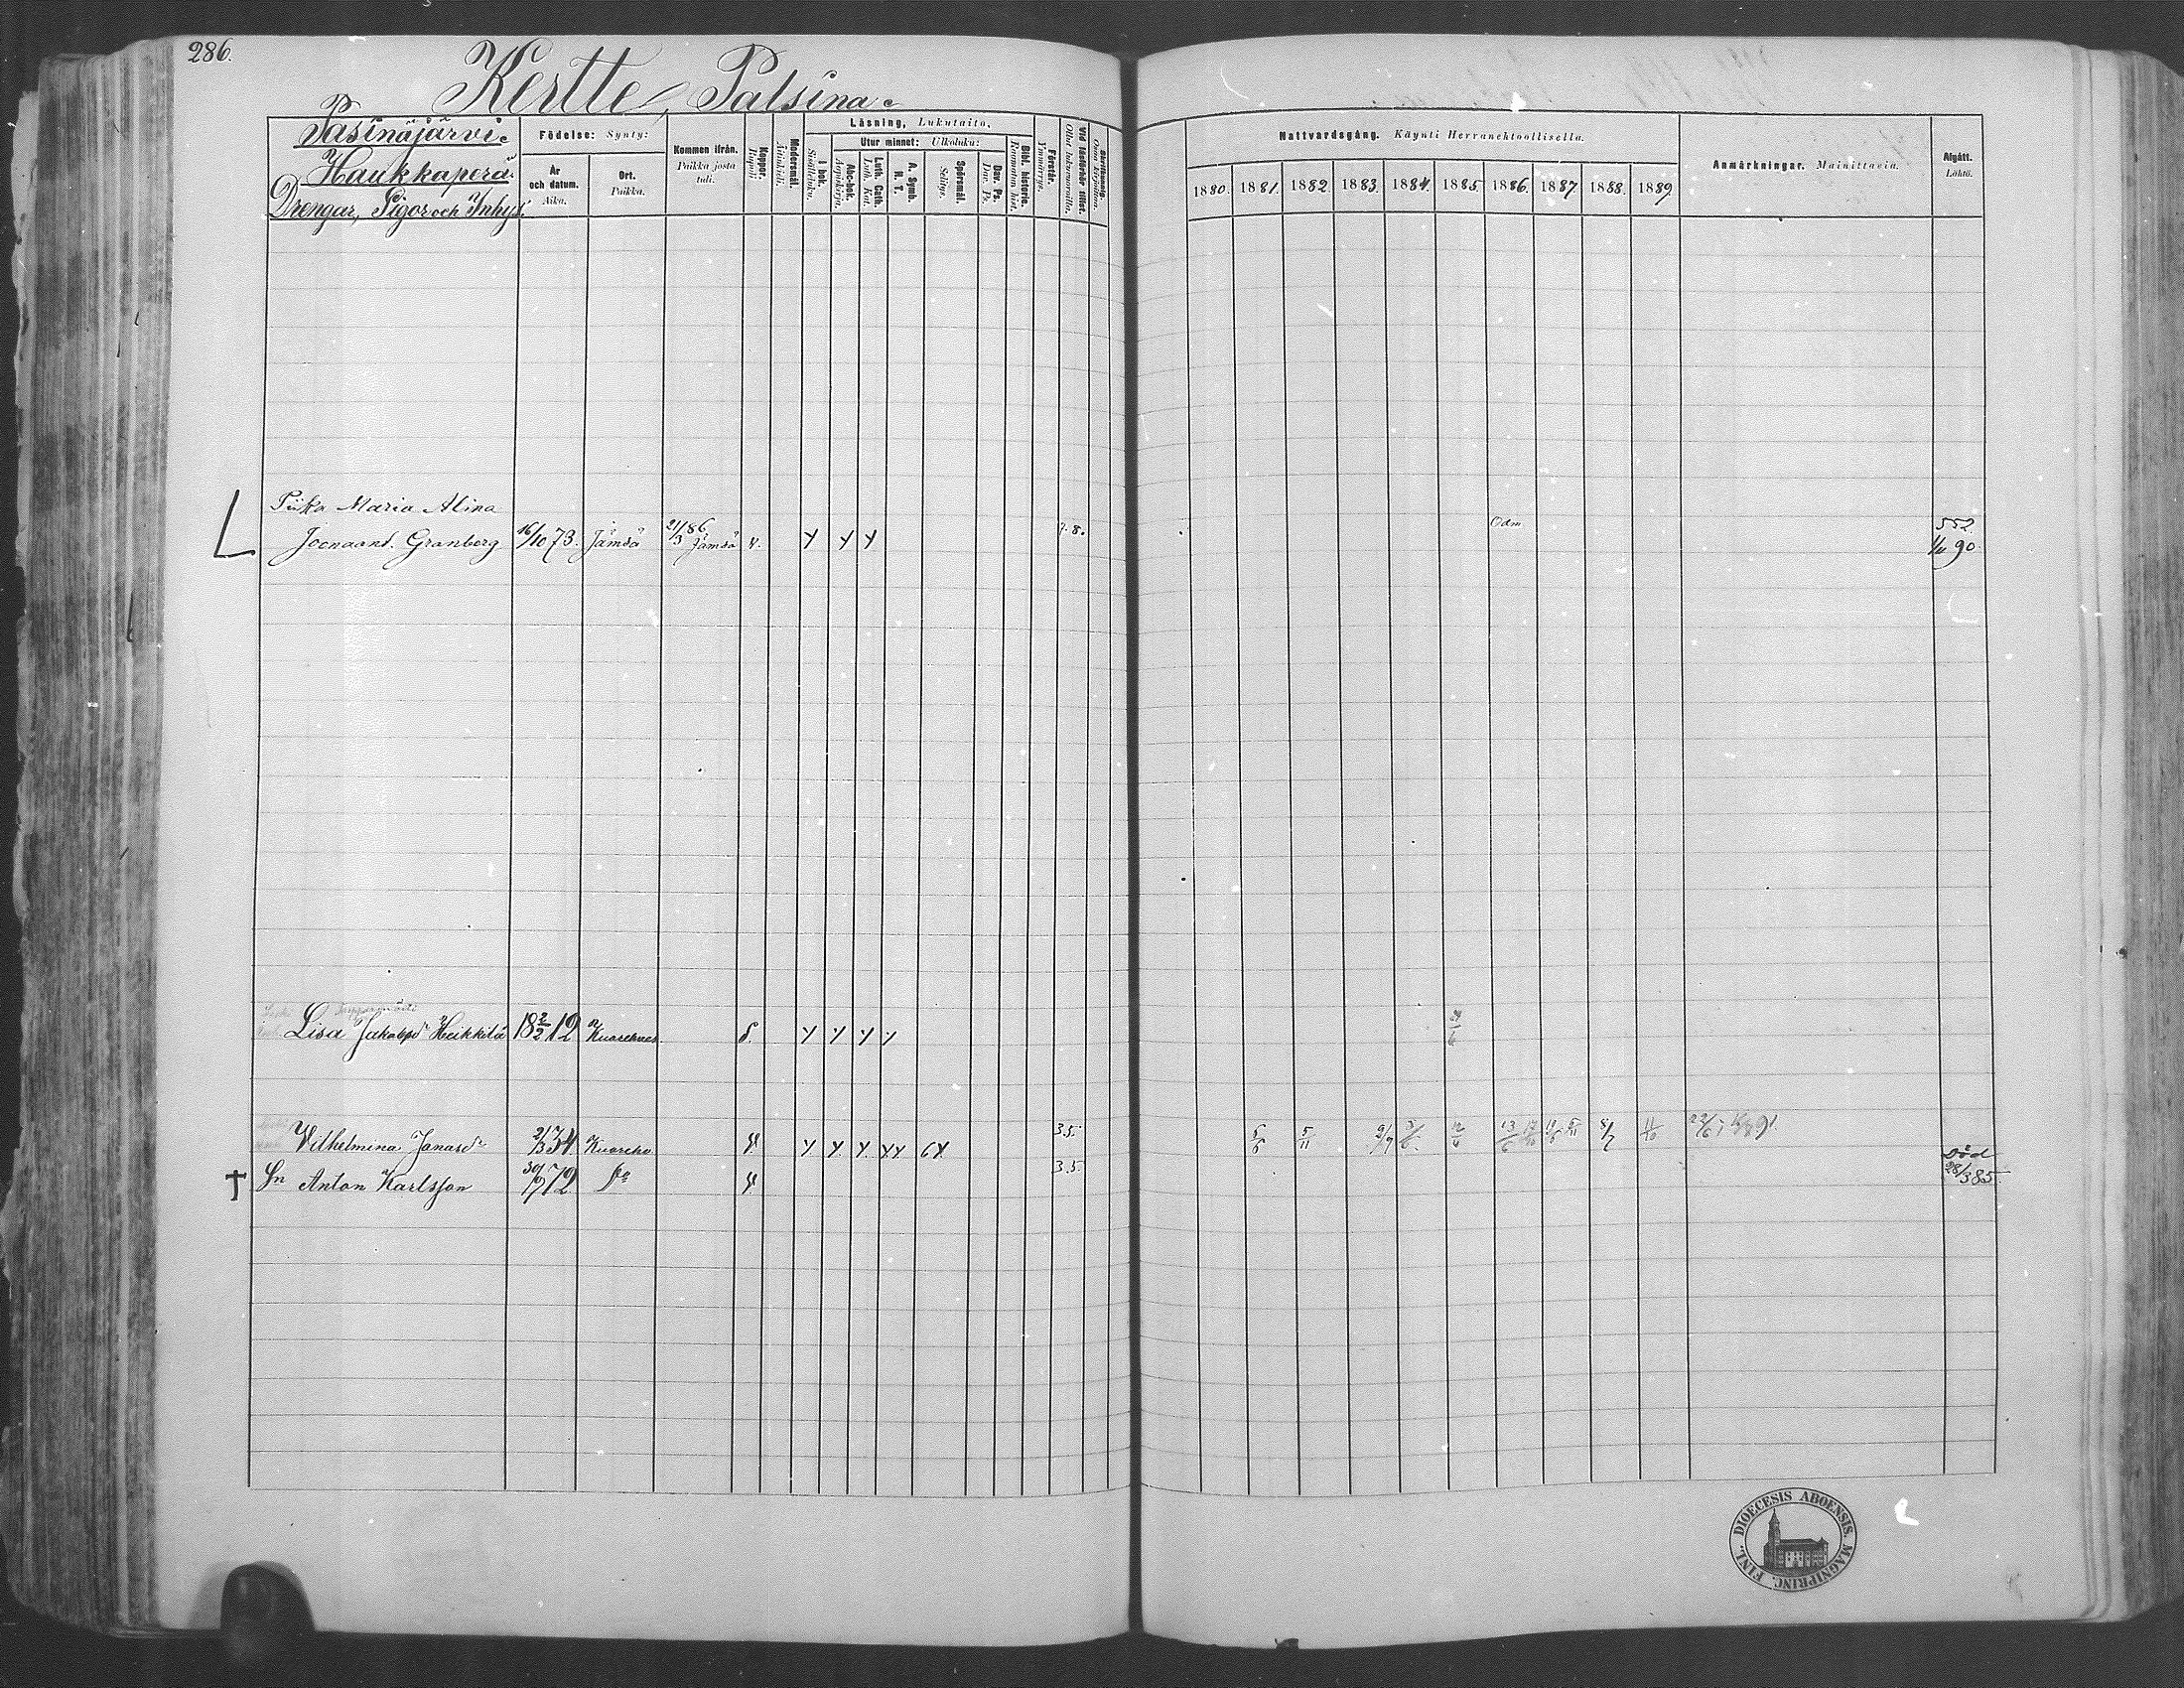 286.
Kertte, Palsina.
Pasinäjärvi.
Haukkaperä.
Drengar, Pigor och Inhys.
Födelse: Synty:
År och datum. Aika.
Ort. Paikka.
Kommen ifrån. Paikka josta tuli.
Koppor. Rupuli.
Modersmål. Äitinkieli.
Läsning, Lukutaito.
I bok. Sisältluku.
Utur minnet: Ulkoluku:
Abc-bok. Aapiskirja.
Luth. Cath. Luth. Kat.
A. Symb. H. T.
Spörsmål. Selitys.
Dav. Ps. Dav. Ps.
Bibl. historia. Raamatun hist.
Förstår. Ymmärrys.
Vid läsförhör tillst. Ollut lukuvuoroilla.
Nattvardsgång. Käynti Herranehtoollisella.
1880. 1881. 1882. 1883. 1884. 1885. 1886. 1887. 1888. 1889.
Anmärkningar. Mainittavia.
Afgått. Lähtö.
Piika Maria Alina
Granberg 16/10 73. Jämsä 21/3 86 Jämsä v. 7.8. Odm. 552 90.
Lisa Jakobsd. Heikkilä 18 2/2 12 Kuorehves
Vilhelmina Janasdr 2/3 34 Kuoreho 3.5. 5/11
† Sn Anton Karlsson 30/7 72 Do 3.5. Död 28/3 85
DIOECESIS ABOENSIS. MAGNIPRINC. FINL.